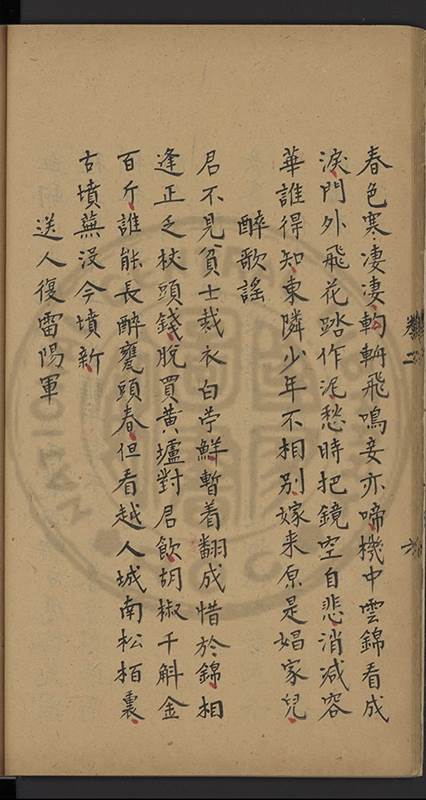 春色寒淒淒鞫鞫飛鳴妾亦啼機中雲錦看成
淚門外飛花踏作泥愁時把鏡空自悲消減容
華誰得知東隣少年不相別嫁来原是娼家兒
醉歌謠
君不見貧士裁衣白苧鮮暫着翻成惜於錦相
逢正乏杖頭錢脫買黃壚對君飲胡椒千斛金
百斤誰能長醉甕頭春但看越人城南松栢裏
古墳蕪没今墳新
送人復雷陽軍
卷二
六